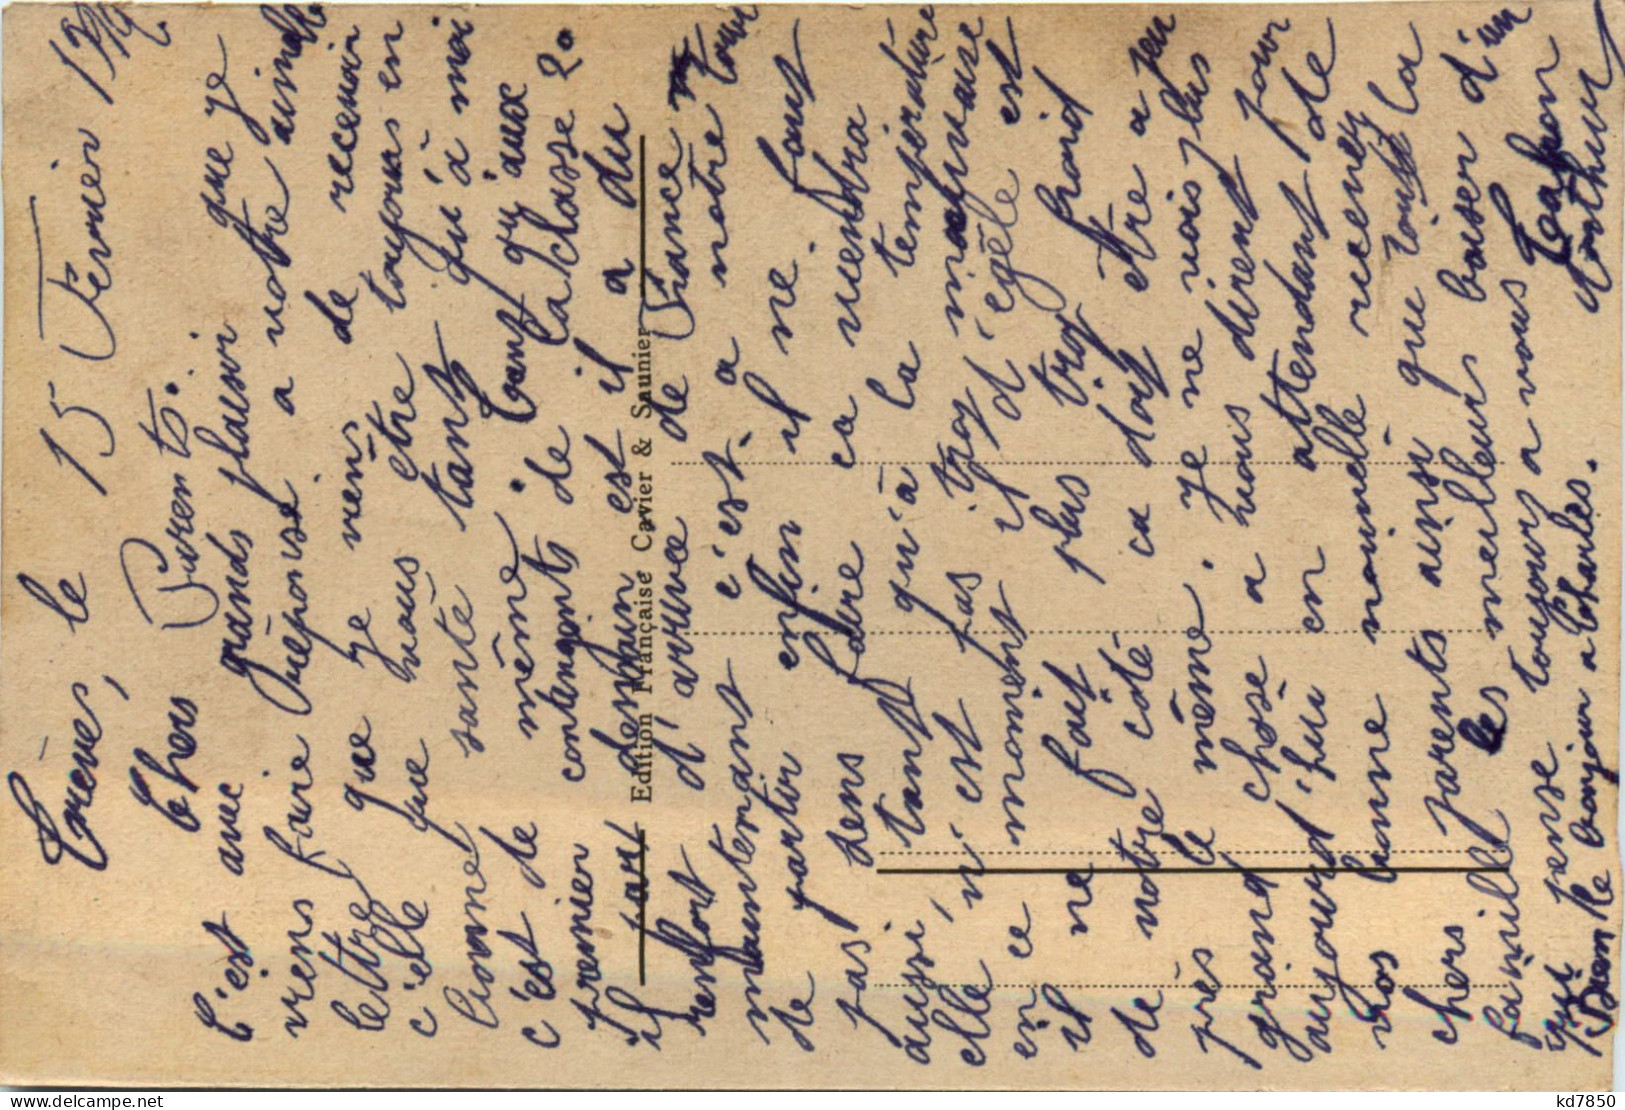 Trèves, le 15 Février 192
Chers Parents.
C'est avec grands plaisir que je
viens faire réponse a votre aimable
lettre que je viens de recevoir
c'elle que vous être toujours en
bonne santé tant qu'à moi
c'est de même. Tant qu'aux
premier contingents de la classe 20
il part demain et il a du
renfort d'arrivée de France
maintenant c'est a notre tour
de partir enfin il ne faut
pas sens faire ca viendra
aussi, tant qu'à la température
elle n'est pas trop mauvaise
en ce moment il d'égèle est
il ne fait plus trop froid
de notre côté ca doit être a peu
près le même. Je ne vois plus
grand chose a vous dirent pour
aujourd'hui en attendant de
vos bonne nouvelle recevez
chers parents ainsi que toute la
famille les meilleurs baiser d'un
qui pense toujours a vous
Bien le bonjour a Charles.
Arthur
Edition Française Cavier & Saunier
kd7850